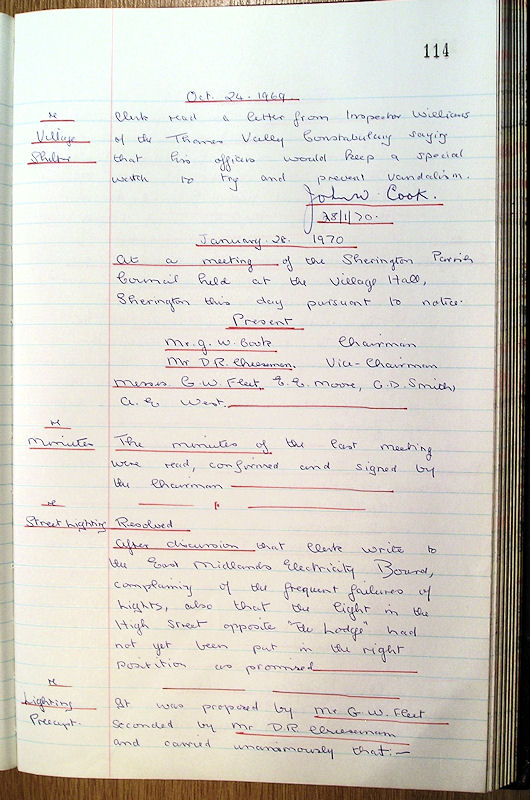 114
Oct. 24. 1969
re Village Shelter
Clerk read a letter from Inspector Williams
of the Thames Valley Constabulary saying
that his officers would keep a special
watch to try and prevent vandalism.
John W. Cook.
28/1/70.
January. 28. 1970
At a meeting of the Sherington Parish
Council held at the Village Hall,
Sherington this day pursuant to notice.
Present
Mr. J. W. Cook Chairman
Mr D.R. Cheeseman. Vice-Chairman
Messrs G.W. Fleet, E.E. Moore, C.D. Smith,
A. E West.
re
Minutes
The minutes of the last meeting
were read, confirmed and signed by
the Chairman
re
Street Lighting
Resolved
After discussion that Clerk write to
the East Midlands Electricity Board,
complaining of the frequent failures of
Lights, also that the light in the
High Street opposite "The Lodge" had
not yet been put in the right
position as promised
re
Lighting
Precept.
It was proposed by Mr G.W. Fleet
seconded by Mr D.R. Cheeseman
and carried unanamously that:—